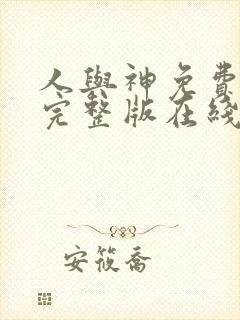 人與神免費
完整版在綫
安筱喬